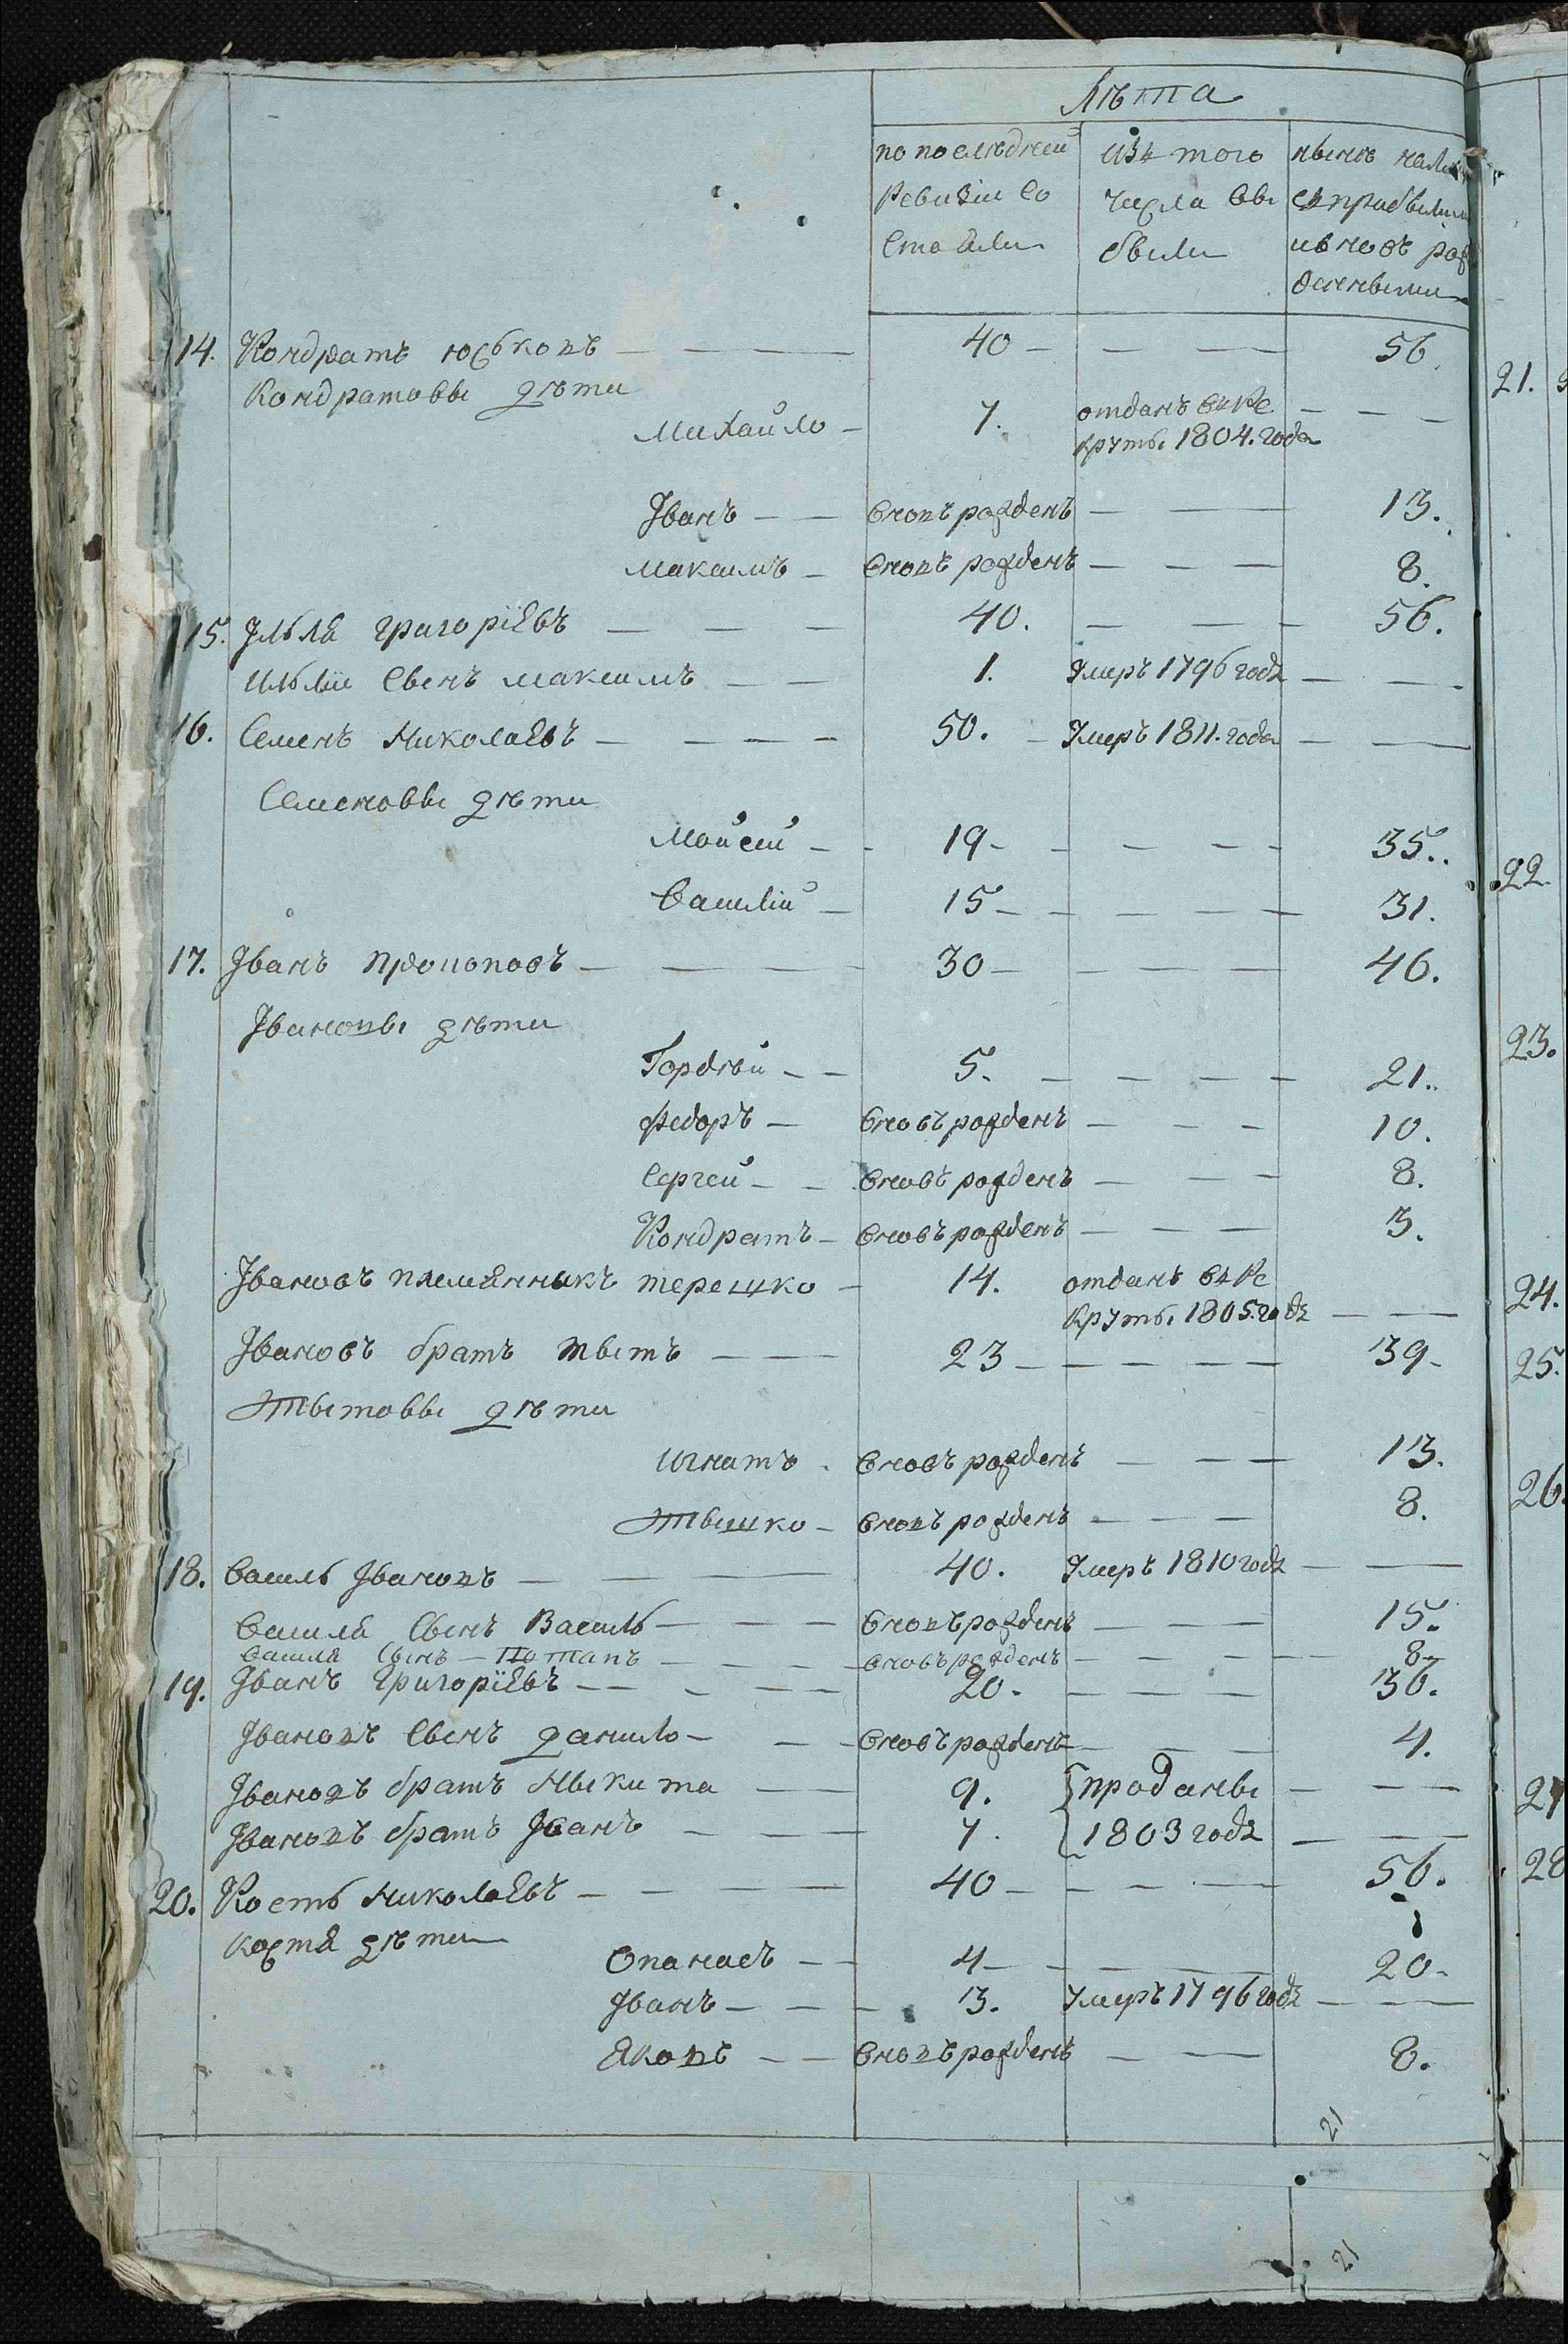 Лѣта
по послѣдней | изъ того | нынѣ налиц
Ревизіи со | числа вы | съ прибылыми
стояли | были | и вновь рож
денными
14. Кондратъ Юськовъ — 40 — 56.
Кондратовы дѣти
Михайло — 7. отданъ въ Ре
круты 1804. года
Іванъ — вновь рожденъ — 13.
Максимъ — вновь рожденъ — 8.
15. Ілья Григоріевъ — 40. — 56.
Ильи сынъ Максимъ — 1. умеръ 1796 года —
16. Семенъ Николаевъ — 50. — умеръ 1811. года —
Семеновы дѣти
Мойсій — 19 — 35.
Василій — 15 — 31.
17. Іванъ — 30 — 46.
Івановы дѣти
Гордѣй — 5. — 21.
Федоръ — вновь рожденъ — 10.
Сергей — вновь рожденъ — 8.
Кондратъ — вновь рожденъ — 3.
Івановъ племянникъ Терешко — 14. отданъ въ Ре
круты 1805. года —
Івановъ братъ Тытъ — 23 — 39.
Тытовы дѣти
Игнатъ. вновь рожденъ — 13.
Тышко — вновь рожденъ — 8.
18. Василь Івановъ — 40. умеръ 1810 года —
Василя сынъ Василь — вновь рожденъ — 15.
Василя сынъ — Потапъ — вновь рожденъ — 8.
19. Іванъ Григоріевъ — 20. — 36.
Івановъ сынъ Данило — вновь рожденъ — 4.
Івановъ братъ Ныкита — 9. проданы —
Івановъ братъ Іванъ — 7. 1803 года —
20. Кость Николаевъ — 40 — 56.
Костя дѣти
Опанасъ — 4 — 20.
Іванъ — 3. умеръ 1796 года —
Яковъ — вновь рожденъ — 8.
21
21
21.
22.
23.
24.
25.
26
27
28